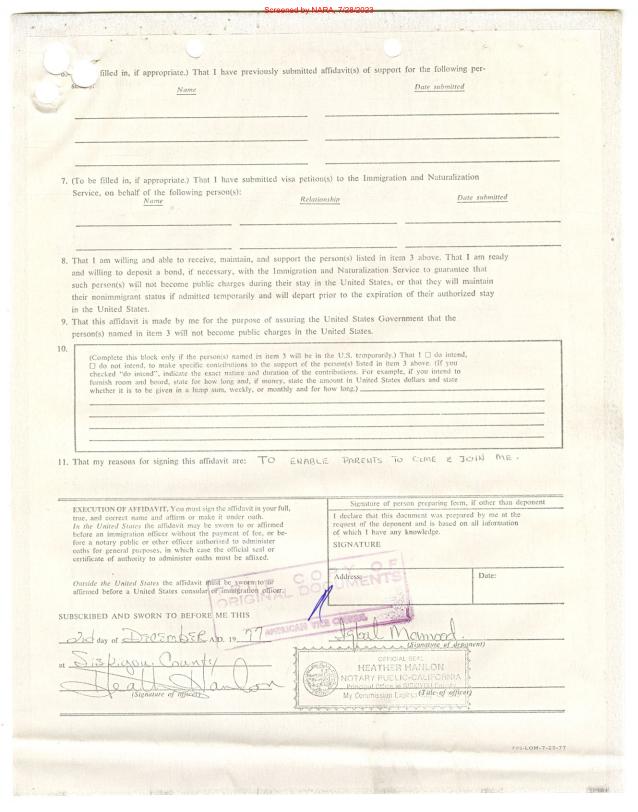 Screened by NARA, 7/28/2023
filled in, if appropriate.) That I have previously submitted affidavit(s) of support for the following per-
Name Date submitted
7. (To be filled in, if appropriate.) That I have submitted visa petiton(s) to the Immigration and Naturalization
Service, on behalf of the following person(s):
Name Relationship Date submitted
8. That I am willing and able to receive, maintain, and support the person(s) listed in item 3 above. That I am ready
and willing to deposit a bond, if necessary, with the Immigration and Naturalization Service to guarantee that
such person(s) will not become public charges during their stay in the United States, or that they will maintain
their nonimmigrant status if admitted temporarily and will depart prior to the expiration of their authorized stay
in the United States.
9. That this affidavit is made by me for the purpose of assuring the United States Government that the
person(s) named in item 3 will not become public charges in the United States.
10.
(Complete this block only if the person(s) named in item 3 will be in the U.S. temporarily.) That I ☐ do intend,
☐ do not intend, to make specific contributions to the support of the person(s) listed in item 3 above. (If you
checked "do intend", indicate the exact nature and duration of the contributions. For example, if you intend to
furnish room and board, state for how long and, if money, state the amount in United States dollars and state
whether it is to be given in a lump sum, weekly, or monthly and for how long.)
11. That my reasons for signing this affidavit are: TO ENABLE PARENTS TO COME & JOIN ME.
EXECUTION OF AFFIDAVIT. You must sign the affidavit in your full,
true, and correct name and affirm or make it under oath.
In the United States the affidavit may be sworn to or affirmed
before an immigration officer without the payment of fee, or be-
fore a notary public or other officer authorised to administer
oaths for general purposes, in which case the official seal or
certificate of authority to administer oaths must be affixed.
Outside the United States the affidavit must be sworn to or
affirmed before a United States consular or immigration officer.
Signature of person preparing form, if other than deponent
I declare that this document was prepared by me at the
request of the deponent and is based on all information
of which I have any knowledge.
SIGNATURE
Address: Date:
COPY OF
ORIGINAL DOCUMENTS
AMERICAN VICE CONSUL
SUBSCRIBED AND SWORN TO BEFORE ME THIS
day of DECEMBER A.D. 19 77
(Signature of deponent)
at Siskiyou County
Heath Hanlon
(Signature of officer)
OFFICIAL SEAL
HEATHER HANLON
NOTARY PUBLIC-CALIFORNIA
Principal Office in SISKIYOU County
My Commission Expires
(Title of officer)